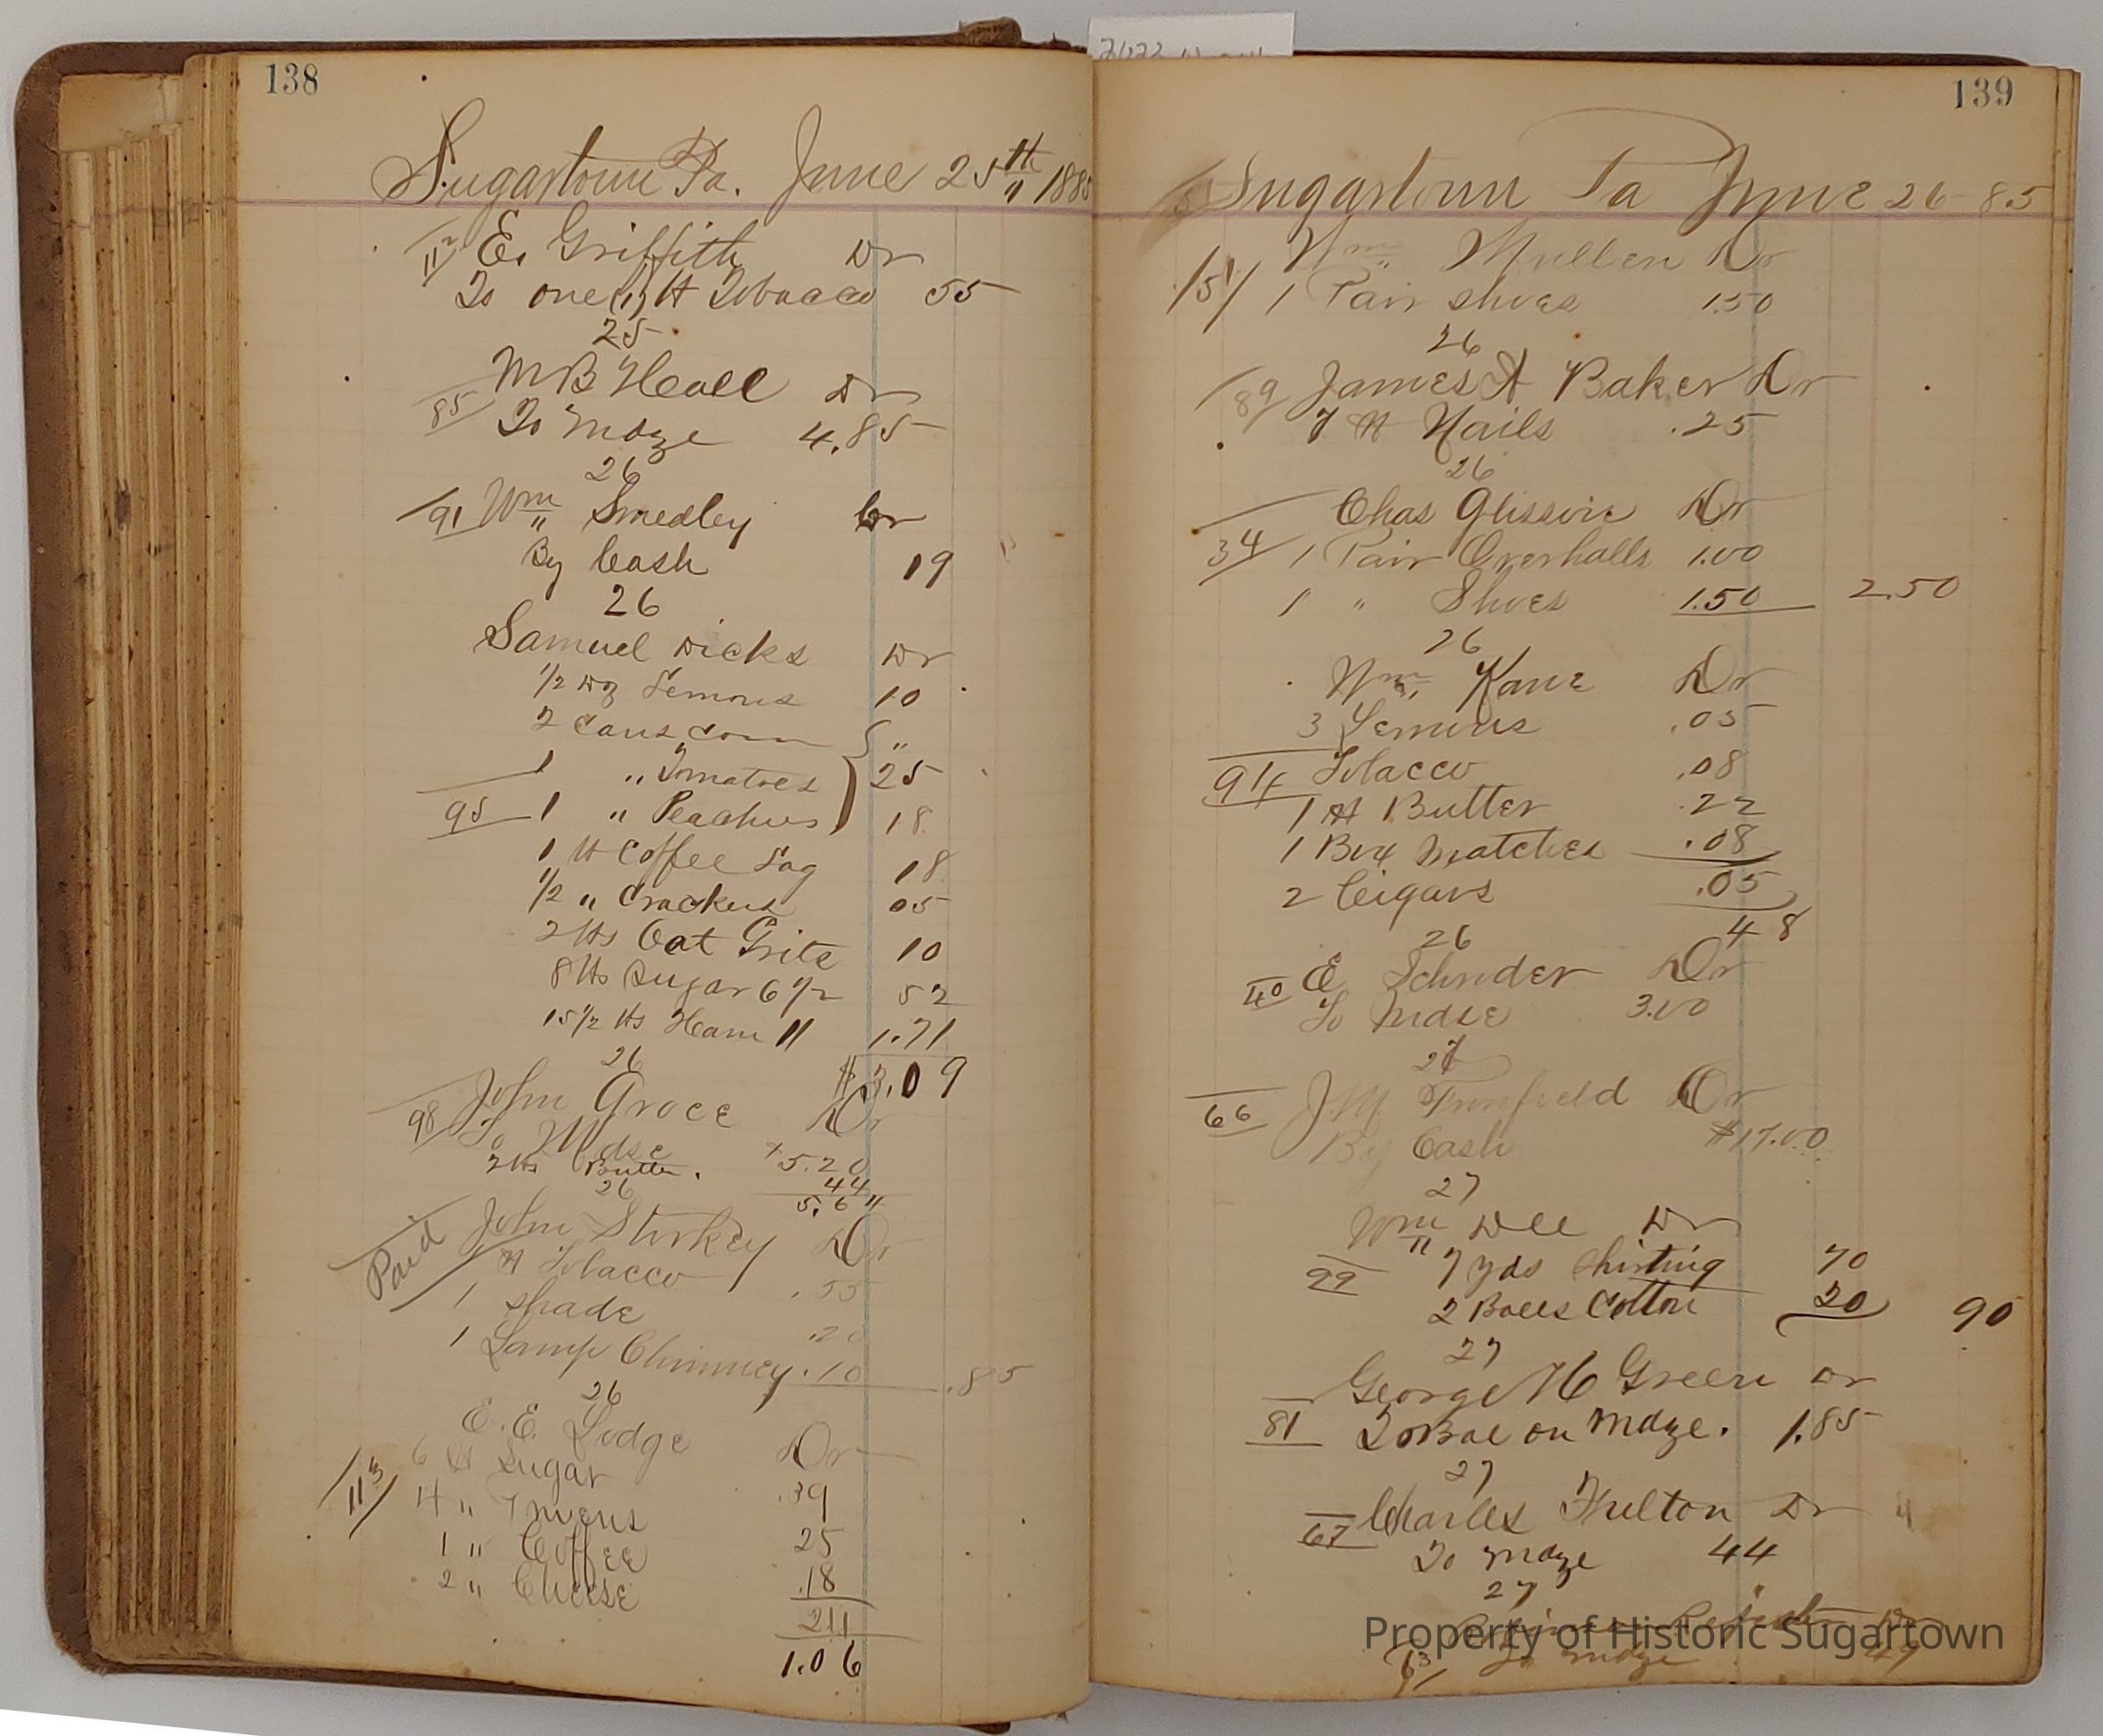 138
Sugartown Pa. June 25th 1885
112 E. Griffith Dr
To one (1) lb Tobacco 55
25
M B Hall Dr
85 To Mdze 4.85
26
91 Wm Smedley Cr
By Cash 19
26
Samuel Dicks Dr
1/2 Dz Lemons 10
2 Cans Corn "
1 " Tomatoes 25
95 1 " Peaches 18
1 lb Coffee 18
1/2 " Crackers 05
2 lbs Oat Grits 10
8 lbs Sugar 6 1/2 52
15 1/2 lbs Ham 11 1.71
$3.09
26
98 John Groce Dr
To Mdse 5.20
2 lbs Butter. 44
5.64
26
Paid John Storkey Dr
lb Tobacco .55
1 Shade .20
1 Lamp Chimney .10 .85
26
E. E. Lodge Dr
6 lb Sugar .39
113 4 " 25
1 " Coffee .18
2 " Cheese 24
1.06
2022
139
Sugartown Pa June 26 - 85
Wm Mullen Dr
151 1 Pair Shoes 1.50
26
89 James A Baker Dr
7 lb Nails .25
26
Chas Dr
34 1 Pair Overhalls 1.00
1 " Shoes 1.50 2.50
26
Wm Kane Dr
3 Lemons .05
94 Tobacco .08
1 lb Butter .22
1 Box Matches .08
2 Cigars .05
48
26
40 E Schrider Dr
To Mdse 3.00
27
66 J M Dr
By Cash $17.00
27
Wm Dee Dr
99 7 yds Shirting 70
2 Balls Cotton 20 90
27
George H Green Dr
81 To Bal on Mdze. 1.85
27
67 Charles Fulton Dr
To Mdze 44
27
Dr
63 To Mdze 49
Property of Historic Sugartown